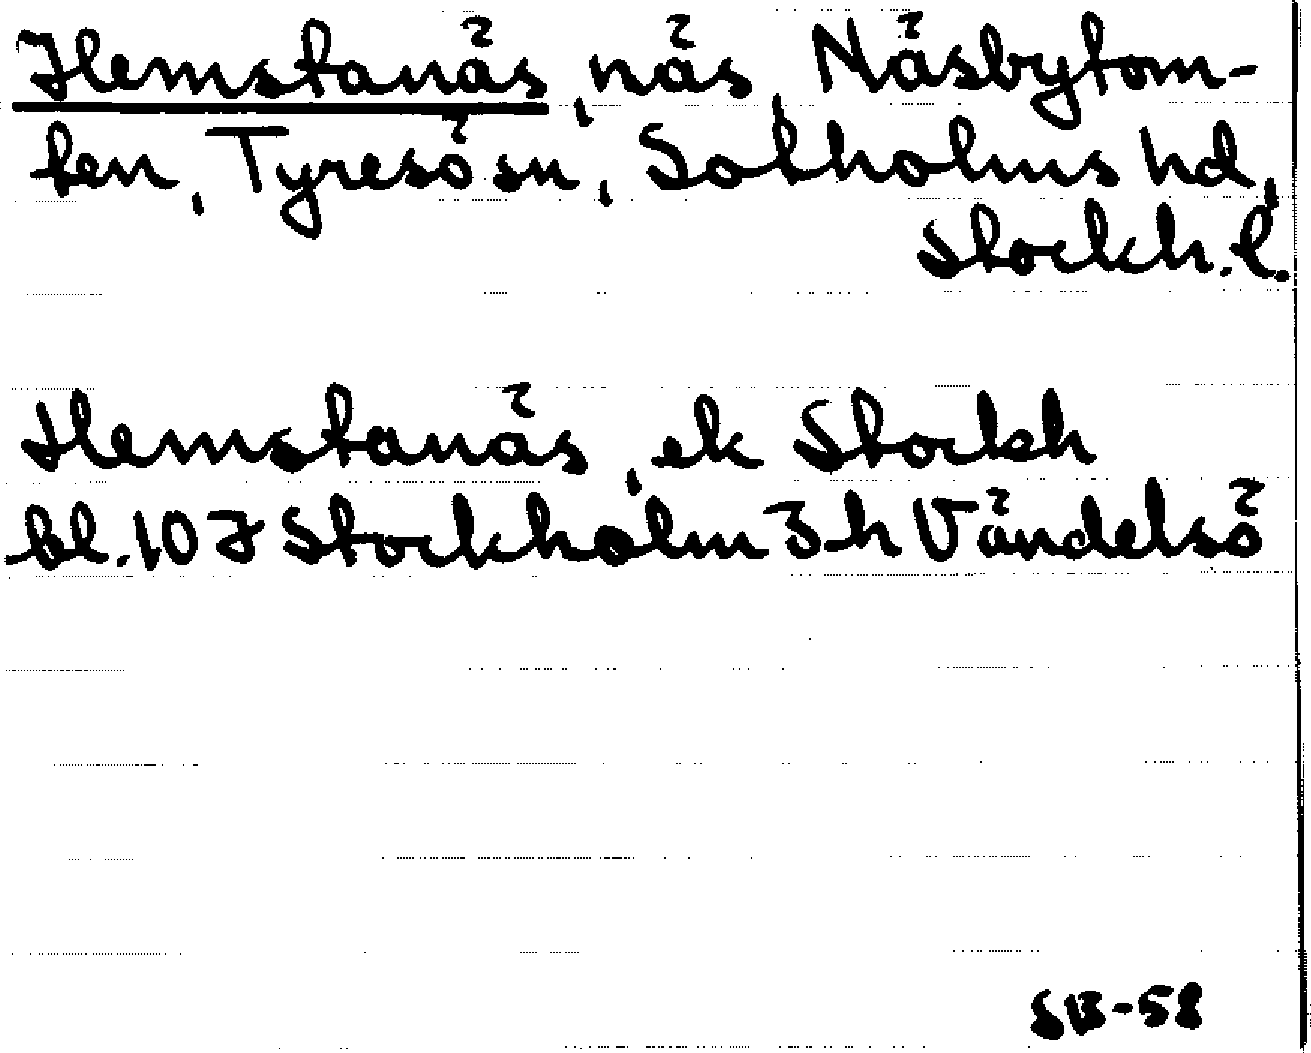 Hemstanäs, näs, Näsbytom-
ten, Tyresö sn, Sotholms hd,
Stockh. l.
Hemstanäs, ek Stockh
bl. 10 I Stockholm 3 h Vändelsö
SB-58